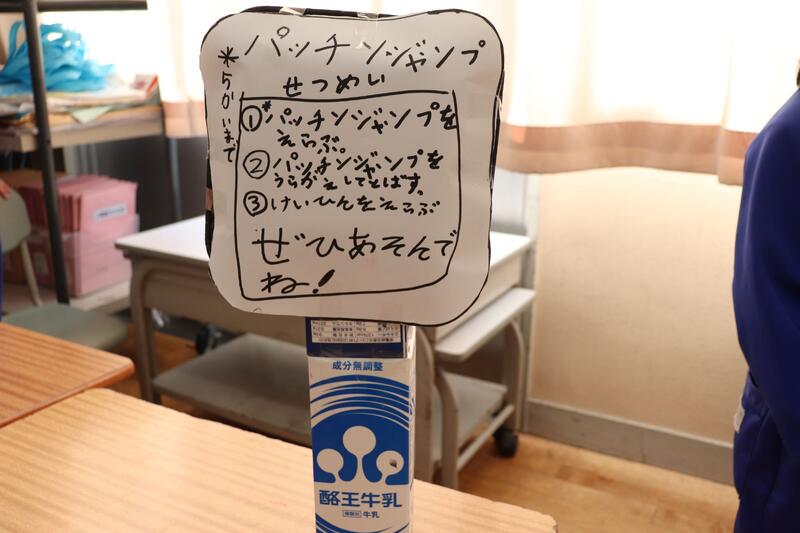 パッチンジャンプ
*5かいまで
せつめい
①*パッチンジャンプを
えらぶ。
②パッチンジャンプを
うらがえしてとばす。
③けいひんをえらぶ
ぜひあそんで
ね!
成分無調整
酪王牛乳
種類別 牛乳